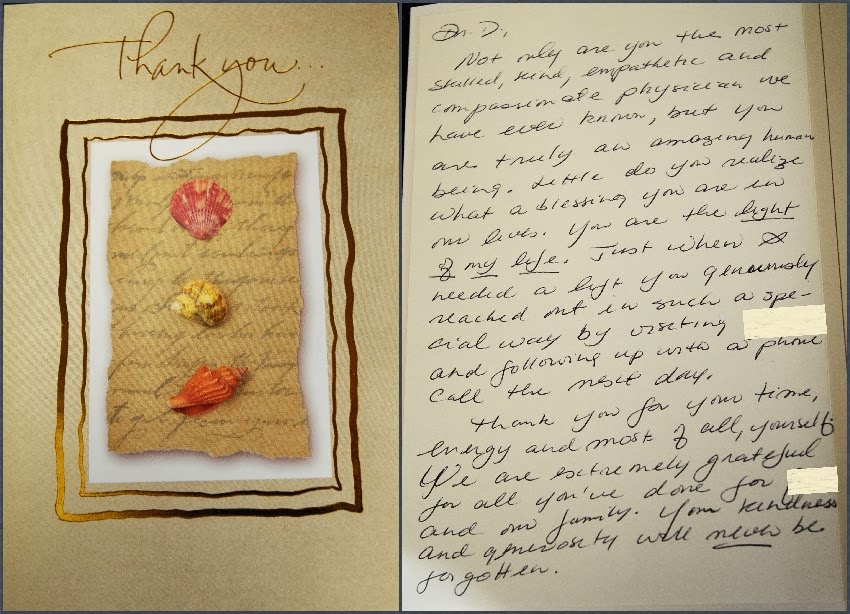 Thank you...
Dr. D.,
Not only are you the most
skilled, kind, empathetic and
compassionate physician we
have ever known, but you
are truly an amazing human
being. Little do you realize
what a blessing you are in
our lives. You are the light
of my life. Just when I
needed a lift you generously
reached out in such a spe-
cial way by visiting
and following up with a phone
call the next day.
Thank you for your time,
energy and most of all, yourself.
We are extremely grateful
for all you've done for
and our family. Your kindness
and generosity will never be
forgotten.